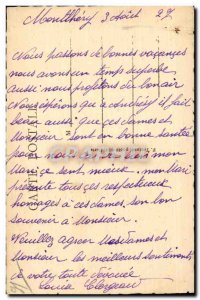 Montlhéry 3 août 27
Nous passons de bonnes vacances
nous avons un temps superbe
aussi nous profitons du bon air
Nous espérons que a il fait
beau aussi que ces dames et
Monsieur sont en bonne santée
pour mon
va sent mieux. mon mari
présente tous ces respectueux
homages à ces dames, son bon
souvenir à Monsieur.
Veuillez agréer Mesdames et
Monsieur les meilleurs sentiments
de votre toute dévouée
Louise
CARTE POSTALE